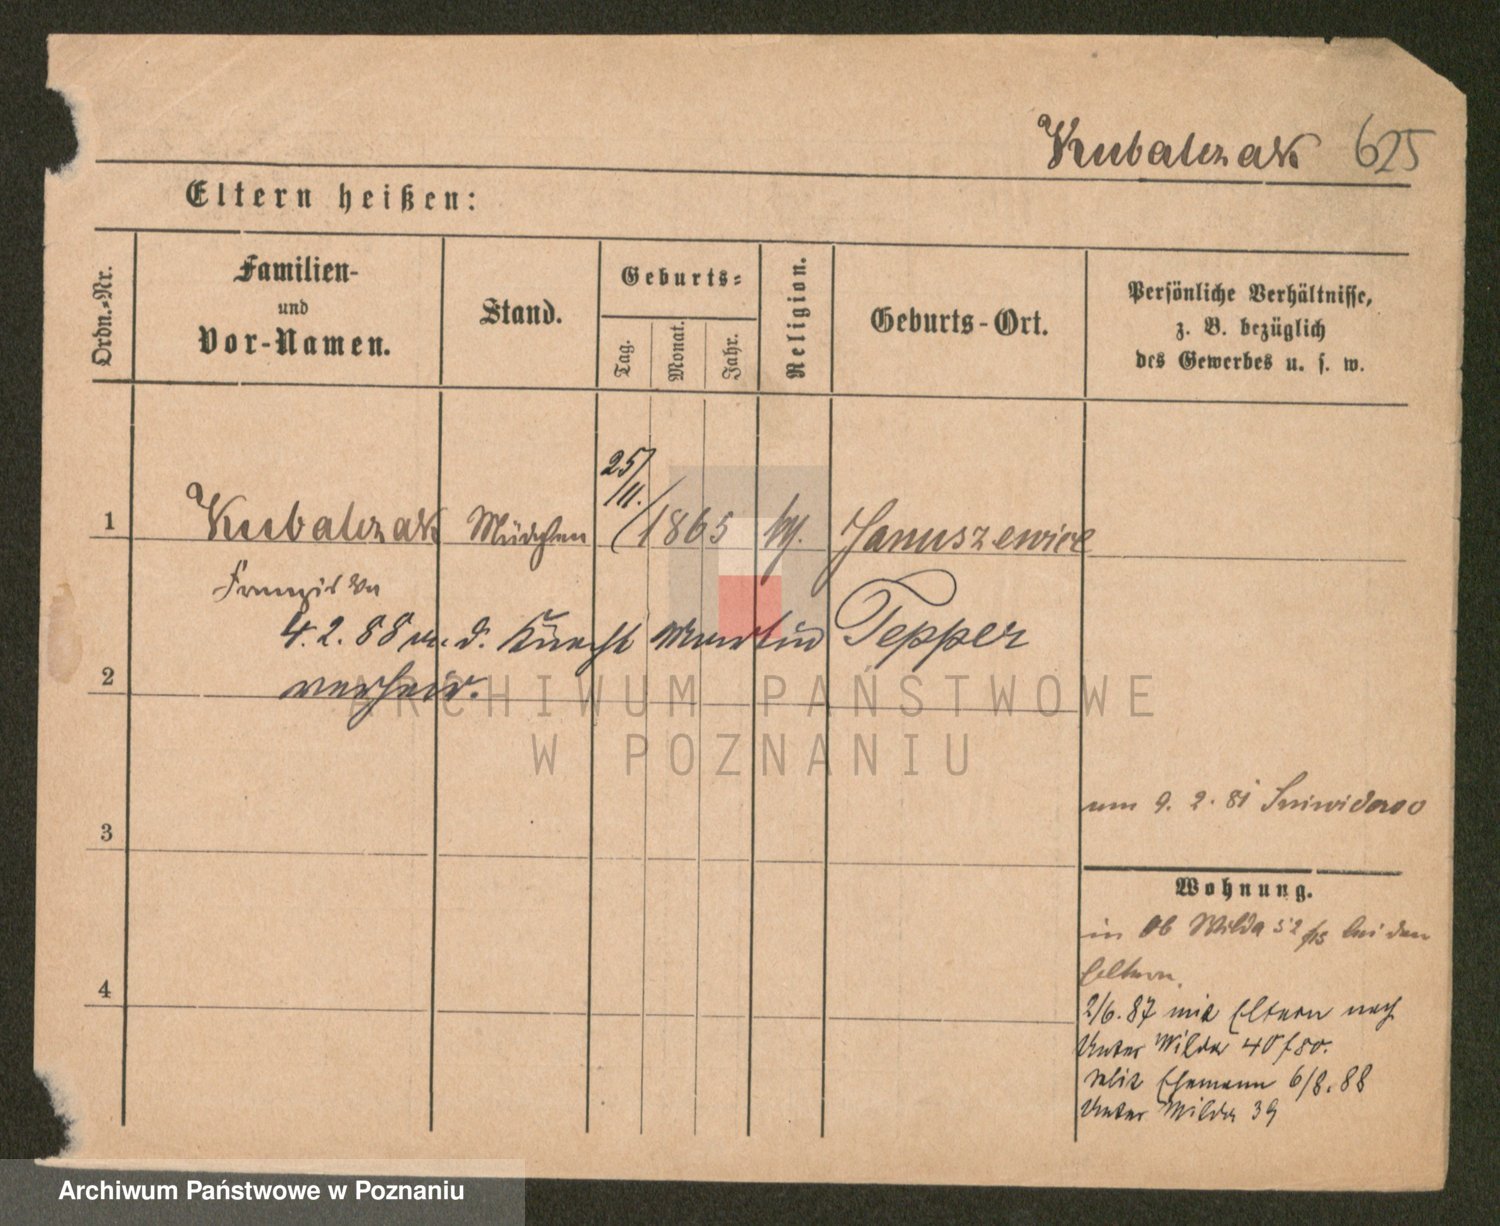 Kubalczak 625
Eltern heißen:
Ordn.-Nr.
Familien-
und
Vor-Namen.
Stand.
Geburts-
Tag.
Monat.
Jahr.
Religion.
Geburts-Ort.
Persönliche Verhältnisse,
z. B. bezüglich
des Gewerbes u. s. w.
25/
11.
1 Kubalczak Mädchen 1865 Januszewice
Franziska
4. 2. 88 m. d. Knecht Martin Tepper
2 verheir.
ARCHIWUM PAŃSTWOWE
W POZNANIU
3
9. 2. 81
Wohnung.
in Ob Wilda 52 bei den
Eltern.
4
2/6. 87 mit Eltern nach
Unter Wilda 40
Mit Ehemann 6/8. 88
Unter Wilda 39
Archiwum Państwowe w Poznaniu